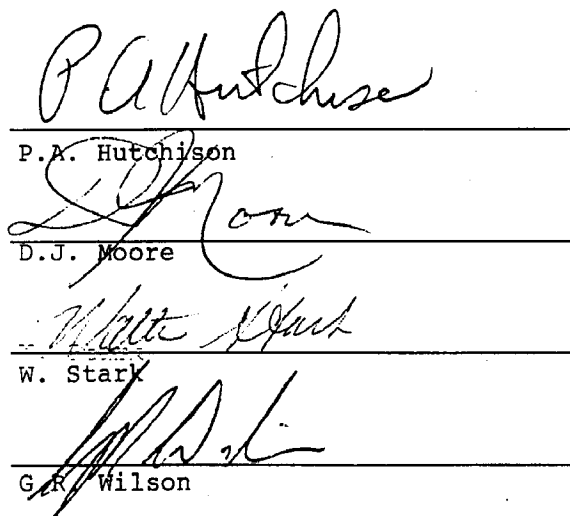 P A Hutchison
P.A. Hutchison
DJ Moore
D.J. Moore
W. Stark
G.R. Wilson